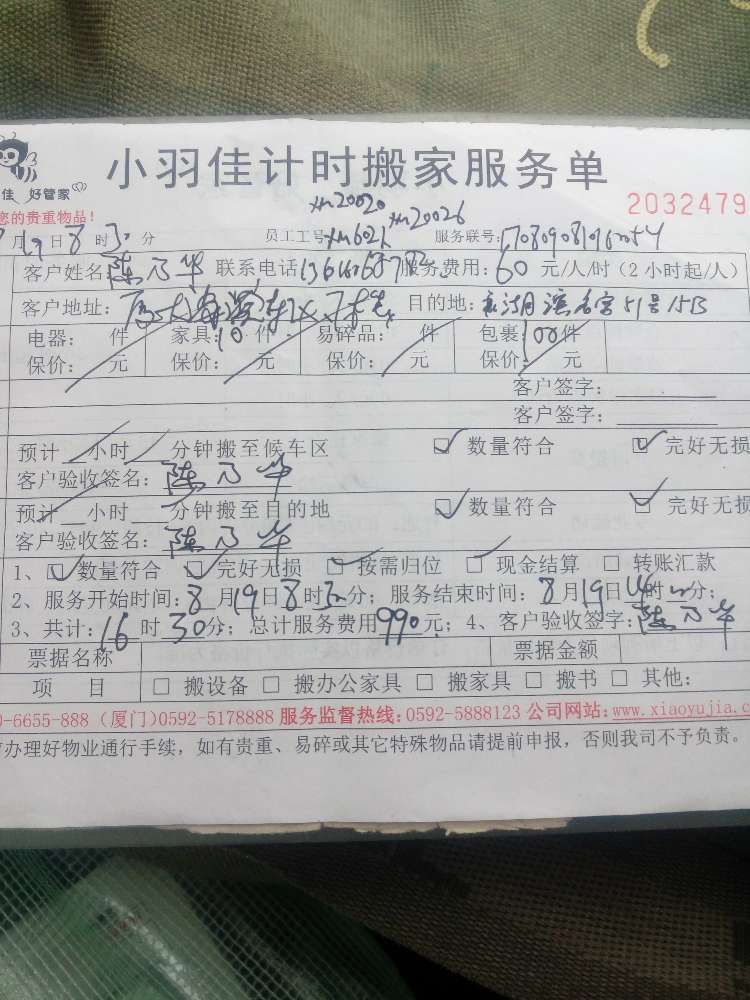 小羽佳计时搬家服务单
佳 好管家
您的贵重物品！
2032479
xm20020 xm20026
月19日8时30分 员工工号 xm6021 服务联号:
客户姓名:陈乃华 联系电话 服务费用:60元/人/时(2小时起/人)
客户地址: 目的地: 51号15B
电器: 件 家具:10件 易碎品: 件 包裹:100件
保价: 元 保价: 元 保价: 元 保价: 元
客户签字:
客户签字:
预计 小时 分钟搬至候车区 ☑数量符合 ☑完好无损
客户验收签名:陈乃华
预计 小时 分钟搬至目的地 ☑数量符合 ☑完好无损
客户验收签名:陈乃华
1、☑数量符合 ☑完好无损 ☑按需归位 ☑现金结算 □转账汇款
2、服务开始时间:8月19日8时30分; 服务结束时间:8月19日14时 分;
3、共计:16时30分; 总计服务费用990元; 4、客户验收签字:陈乃华
票据名称 票据金额
项 目 □搬设备 □搬办公家具 □搬家具 □搬书 □其他:
0-6655-888 (厦门)0592-5178888 服务监督热线:0592-5888123 公司网站:www.xiaoyujia.c
办理好物业通行手续，如有贵重、易碎或其它特殊物品请提前申报，否则我司不予负责。